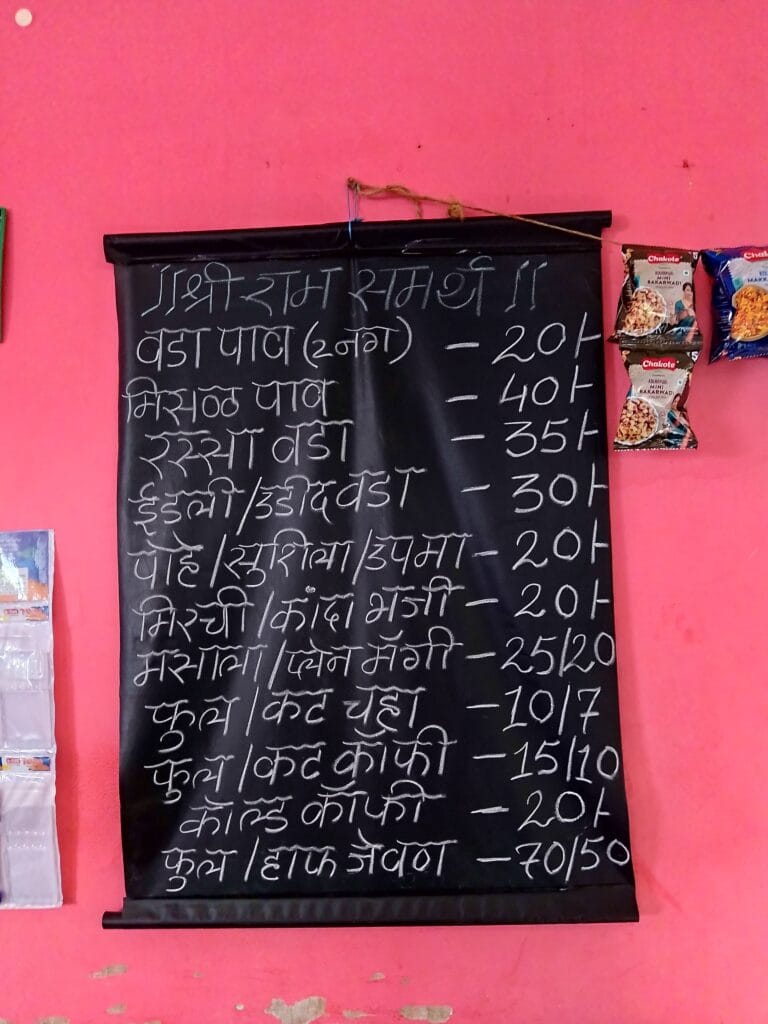 ॥श्री राम समर्थ॥
वडा पाव (2 नग) - 20/-
मिसळ पाव - 40/-
रस्सा वडा - 35/-
ईडली/उडीद वडा - 30/-
पोहे/सुशिला/उपमा - 20/-
मिरची/कांदा भजी - 20/-
मसाला/प्लेन मॅगी - 25/20
फुल/कट चहा - 10/7
फुल/कट कॉफी - 15/10
कोल्ड कॉफी - 20/-
फुल/हाफ जेवण - 70/50
Chakote
KOLHAPURI
MINI
BAKARWADI
Chakote
KOLHAPURI
MINI
BAKARWADI
Chakote